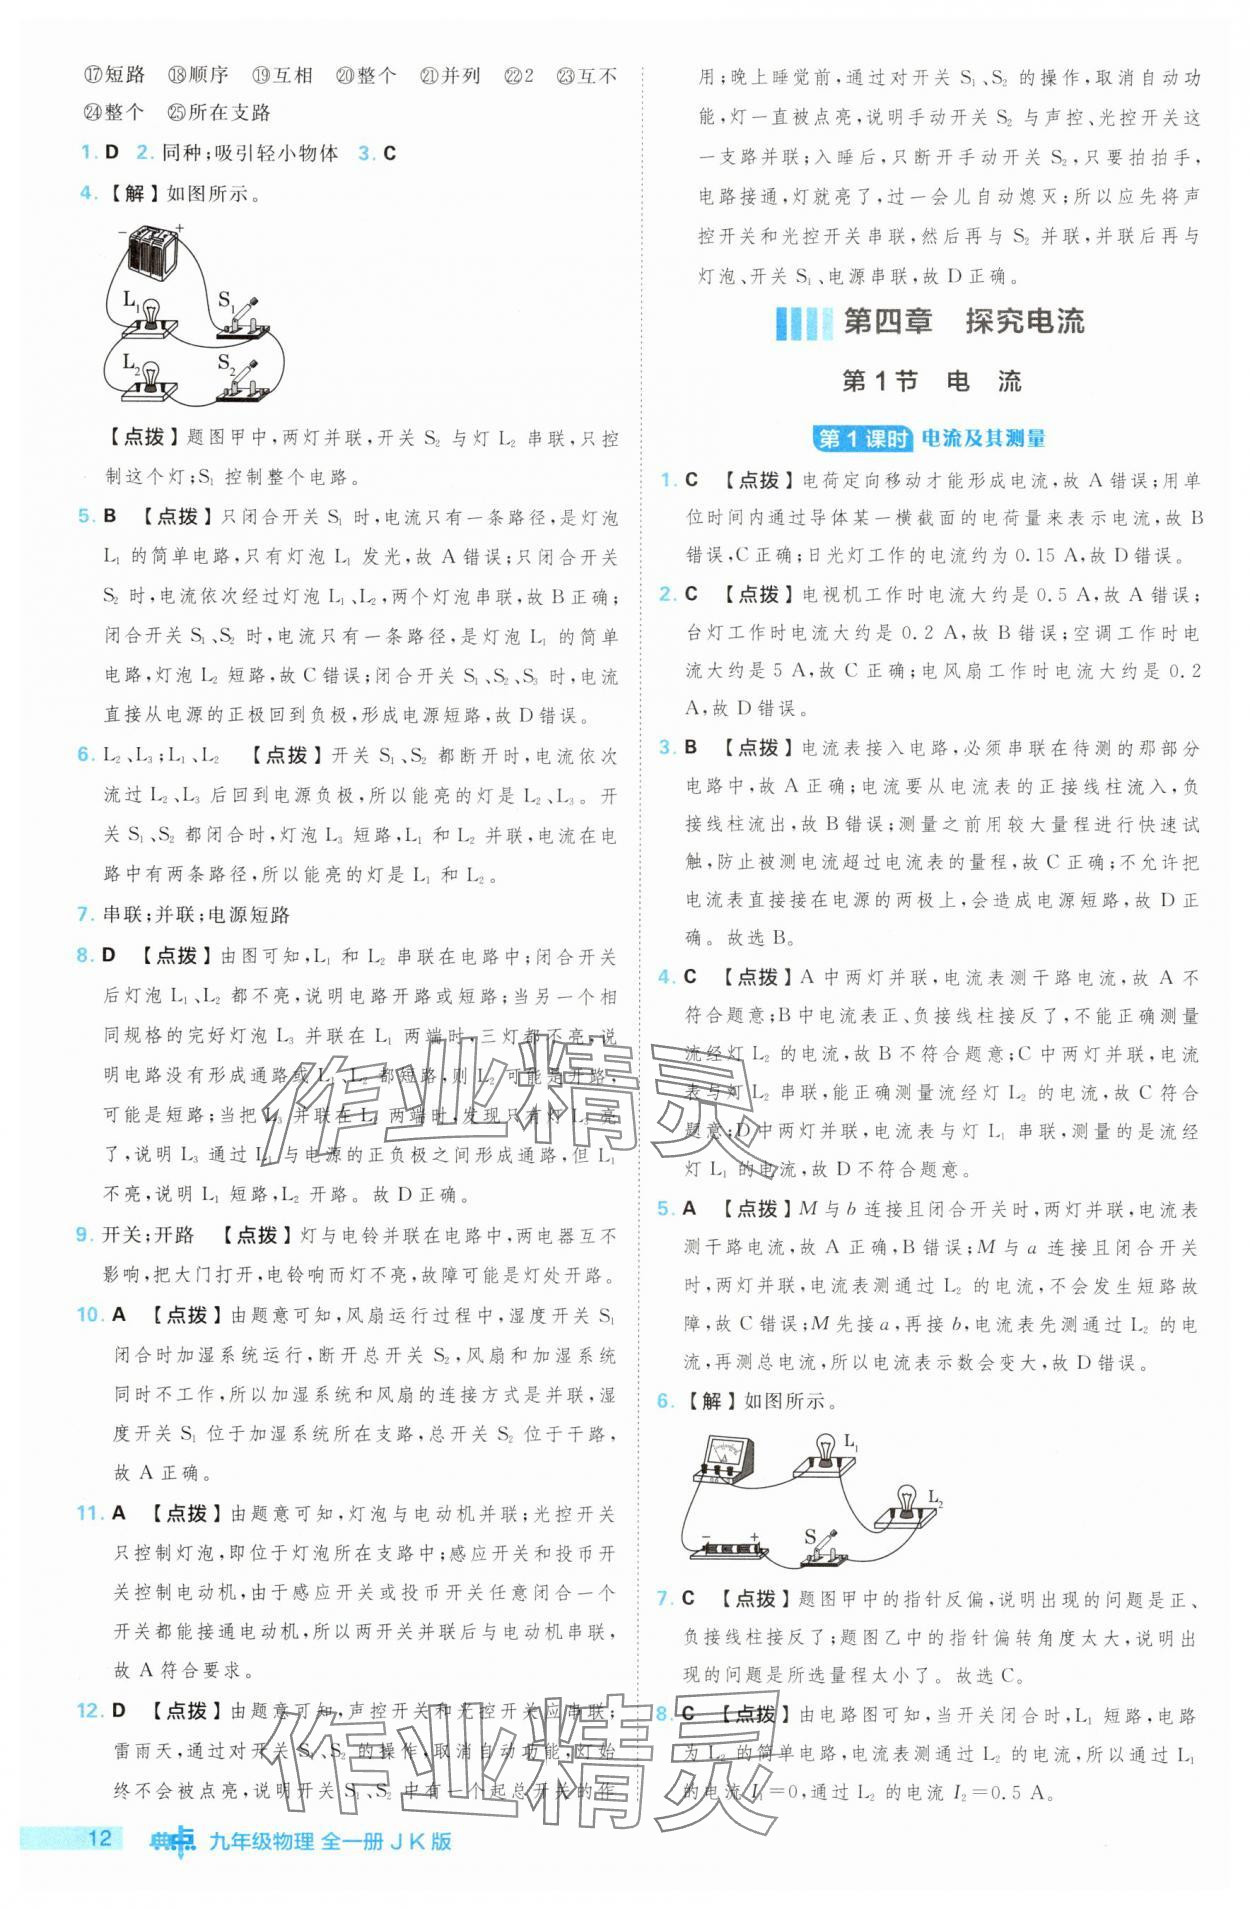 ⑰短路　⑱顺序　⑲互相　⑳整个　㉑并列　㉒2　㉓互不
㉔整个　㉕所在支路
1. D　2. 同种;吸引轻小物体　3. C
4.【解】如图所示。
－　＋
L₁　S₁
L₂　S₂
【点拨】题图甲中,两灯并联,开关 S₂ 与灯 L₂ 串联,只控
制这个灯;S₁ 控制整个电路。
5. B　【点拨】只闭合开关 S₁ 时,电流只有一条路径,是灯泡
L₁ 的简单电路,只有灯泡 L₁ 发光,故 A 错误;只闭合开关
S₂ 时,电流依次经过灯泡 L₁、L₂,两个灯泡串联,故 B 正确;
闭合开关 S₁、S₂ 时,电流只有一条路径,是灯泡 L₁ 的简单
电路,灯泡 L₂ 短路,故 C 错误;闭合开关 S₁、S₂、S₃ 时,电流
直接从电源的正极回到负极,形成电源短路,故 D 错误。
6. L₂、L₃;L₁、L₂　【点拨】开关 S₁、S₂ 都断开时,电流依次
流过 L₂、L₃ 后回到电源负极,所以能亮的灯是 L₂、L₃。开
关 S₁、S₂ 都闭合时,灯泡 L₃ 短路,L₁ 和 L₂ 并联,电流在电
路中有两条路径,所以能亮的灯是 L₁ 和 L₂。
7. 串联;并联;电源短路
8. D　【点拨】由图可知,L₁ 和 L₂ 串联在电路中;闭合开关
后灯泡 L₁、L₂ 都不亮,说明电路开路或短路;当另一个相
同规格的完好灯泡 L₃ 并联在 L₁ 两端时,三灯都不亮,说
明电路没有形成通路或 L₁、L₂ 都短路,则 L₂ 可能是开路,
可能是短路;当把 L₃ 并联在 L₂ 两端时,发现只有灯 L₃ 亮
了,说明 L₃ 通过 L₁ 与电源的正负极之间形成通路,但 L₁
不亮,说明 L₁ 短路,L₂ 开路。故 D 正确。
9. 开关;开路　【点拨】灯与电铃并联在电路中,两电器互不
影响,把大门打开,电铃响而灯不亮,故障可能是灯处开路。
10. A　【点拨】由题意可知,风扇运行过程中,湿度开关 S₁
闭合时加湿系统运行,断开总开关 S₂,风扇和加湿系统
同时不工作,所以加湿系统和风扇的连接方式是并联,湿
度开关 S₁ 位于加湿系统所在支路,总开关 S₂ 位于干路,
故 A 正确。
11. A　【点拨】由题意可知,灯泡与电动机并联;光控开关
只控制灯泡,即位于灯泡所在支路中;感应开关和投币开
关控制电动机,由于感应开关或投币开关任意闭合一个
开关都能接通电动机,所以两开关并联后与电动机串联,
故 A 符合要求。
12. D　【点拨】由题意可知,声控开关和光控开关应串联;
雷雨天,通过对开关 S₁、S₂ 的操作,取消自动功能,灯始
终不会被点亮,说明开关 S₁、S₂ 中有一个起总开关的作
12　典中点　九年级物理 全一册 JK版
用;晚上睡觉前,通过对开关 S₁、S₂ 的操作,取消自动功
能,灯一直被点亮,说明手动开关 S₂ 与声控、光控开关这
一支路并联;入睡后,只断开手动开关 S₂,只要拍拍手,
电路接通,灯就亮了,过一会儿自动熄灭;所以应先将声
控开关和光控开关串联,然后再与 S₂ 并联,并联后再与
灯泡、开关 S₁、电源串联,故 D 正确。
第四章　探究电流
第1节　电　流
第1课时　电流及其测量
1. C　【点拨】电荷定向移动才能形成电流,故 A 错误;用单
位时间内通过导体某一横截面的电荷量来表示电流,故 B
错误,C 正确;日光灯工作的电流约为 0.15 A,故 D 错误。
2. C　【点拨】电视机工作时电流大约是 0.5 A,故 A 错误;
台灯工作时电流大约是 0.2 A,故 B 错误;空调工作时电
流大约是 5 A,故 C 正确;电风扇工作时电流大约是 0.2
A,故 D 错误。
3. B　【点拨】电流表接入电路,必须串联在待测的那部分
电路中,故 A 正确;电流要从电流表的正接线柱流入,负
接线柱流出,故 B 错误;测量之前用较大量程进行快速试
触,防止被测电流超过电流表的量程,故 C 正确;不允许把
电流表直接接在电源的两极上,会造成电源短路,故 D 正
确。故选 B。
4. C　【点拨】A 中两灯并联,电流表测干路电流,故 A 不
符合题意;B 中电流表正、负接线柱接反了,不能正确测量
流经灯 L₂ 的电流,故 B 不符合题意;C 中两灯并联,电流
表与灯 L₂ 串联,能正确测量流经灯 L₂ 的电流,故 C 符合
题意;D 中两灯并联,电流表与灯 L₁ 串联,测量的是流经
灯 L₁ 的电流,故 D 不符合题意。
5. A　【点拨】M 与 b 连接且闭合开关时,两灯并联,电流表
测干路电流,故 A 正确,B 错误;M 与 a 连接且闭合开关
时,两灯并联,电流表测通过 L₂ 的电流,不会发生短路故
障,故 C 错误;M 先接 a,再接 b,电流表先测通过 L₂ 的电
流,再测总电流,所以电流表示数会变大,故 D 错误。
6.【解】如图所示。
L₁
L₂
－　＋　S
7. C　【点拨】题图甲中的指针反偏,说明出现的问题是正、
负接线柱接反了;题图乙中的指针偏转角度太大,说明出
现的问题是所选量程太小了。故选 C。
8. C　【点拨】由电路图可知,当开关闭合时,L₁ 短路,电路
为 L₂ 的简单电路,电流表测通过 L₂ 的电流,所以通过 L₁
的电流 I₁=0,通过 L₂ 的电流 I₂=0.5 A。
作业精灵
作业精灵